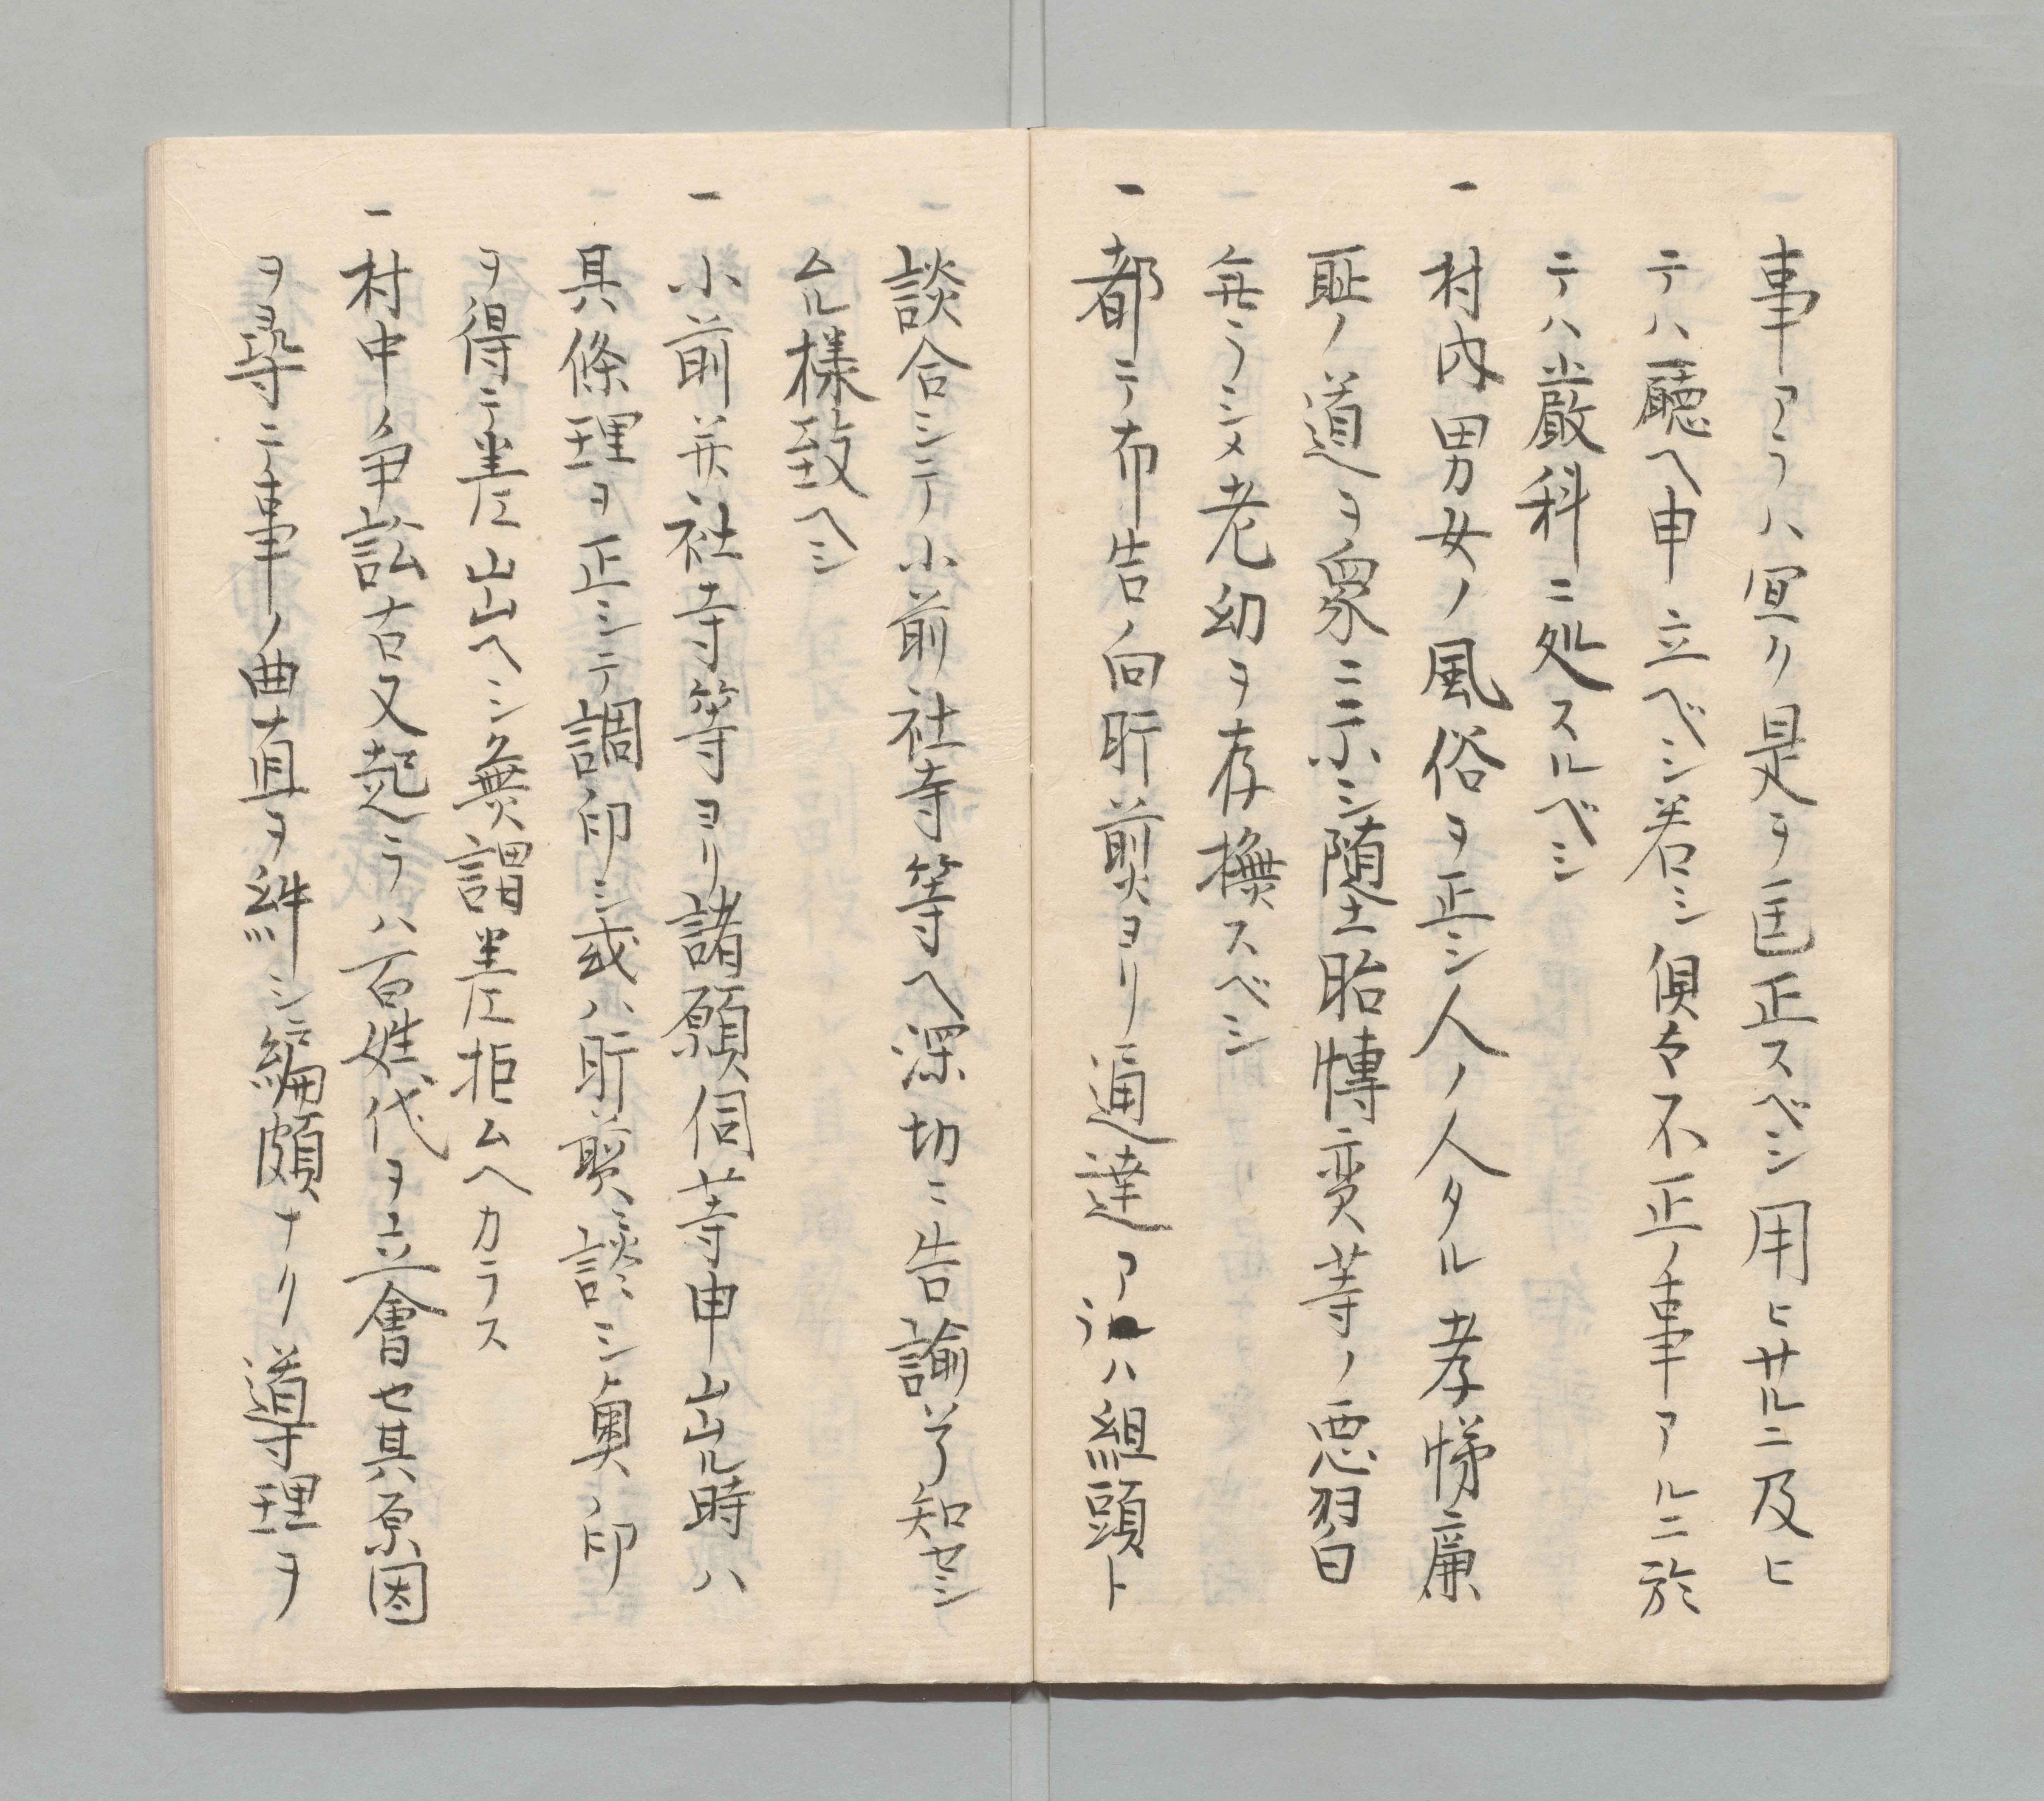 事アラハ宜ク是ヲ匡正スベシ用ヒサルニ及ヒ
テハ廳ヘ申立ベシ若シ偵々不正ノ事アルニ於
テハ嚴科ニ処スルベシ
一 村内男女ノ風俗ヲ正シ人ノ人タル孝悌廉
耻ノ道ヲ衆ニ示シ随土胎博変等ノ悪習
無ラシメ老幼ヲ存撫スベシ
一 都テ布告ノ向所前ヨリ通達アラハ組頭ト
談合シテ小前社寺等ヘ深切ニ告諭シ知セシ
ムル様致ヘシ
一 小前并社寺等ヨリ諸願伺等申出ル時ハ
具條理ヲ正シテ調印シ或ハ所前談シ奥ノ印
ヲ得テ差出ヘシ無謂差拒ムヘカラス
一 村中争訟古又起ラハ百姓代ヲ立會セ其原因
ヲ尋ニ事ノ曲直ヲ糾シ編頗ナク道理ヲ